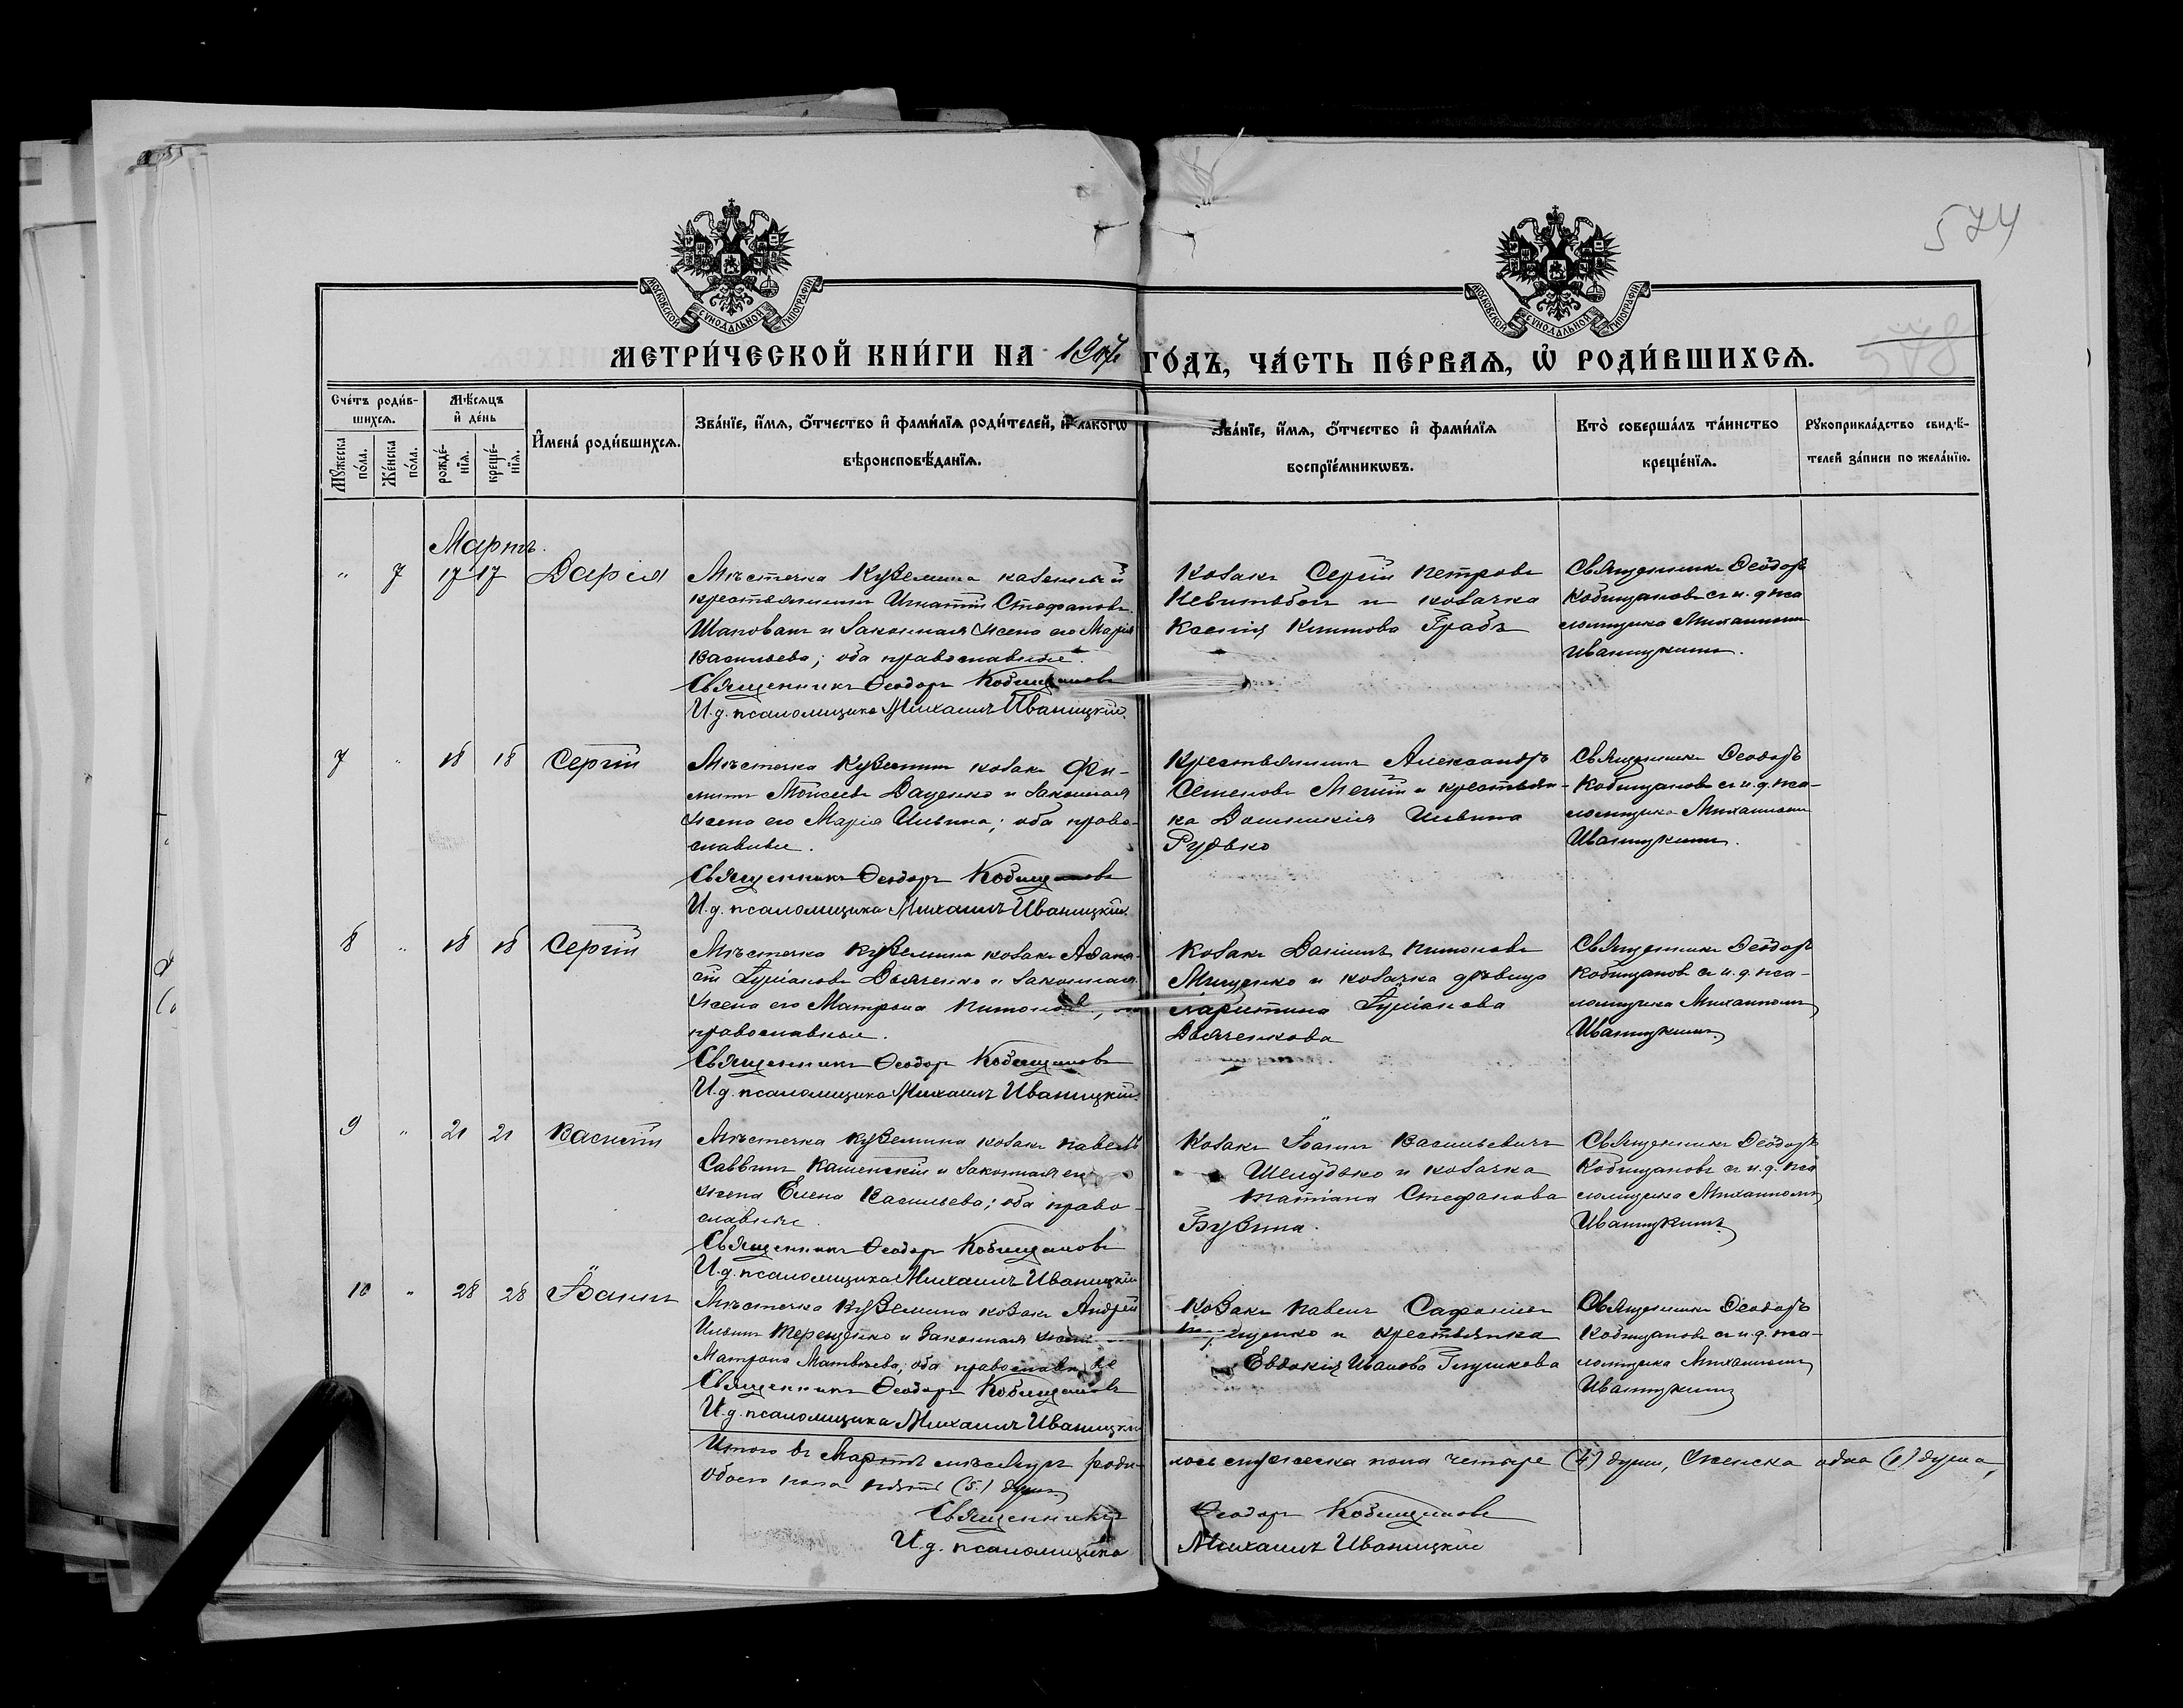 574
578
МОСКОВСКОЙ СѴНОДАЛЬНОЙ ТИПОГРАФІИ
МОСКОВСКОЙ СѴНОДАЛЬНОЙ ТИПОГРАФІИ
МЕТРИ́ЧЕСКОЙ КНИ́ГИ НА 1907 ГО́ДЪ, ЧА́СТЬ ПЕ́РВАѦ, Ѡ РОДИ́ВШИХСѦ.
Сче́тъ роди́в-
шихсѧ.
Мꙋ́жеска по́ла.
Же́нска по́ла.
Мѣ́сѧцъ и҆ де́нь
рожде́-
нїѧ.
креще́-
нїѧ.
И҆мена̀ роди́вшихсѧ.
Зва́нїе, и҆́мѧ, ѻ҆́тчество и҆ фами́лїѧ роди́телей, и҆ какогѡ
вѣроисповѣ́данїѧ.
Зва́нїе, и҆́мѧ, ѻ҆́тчество и҆ фами́лїѧ
воспрїе́мникѡвъ.
Кто̀ соверша́лъ та́инство
креще́нїѧ.
Рꙋкоприкла́дство свидѣ́-
телей за́писи по жела́нїю.
Мартъ.
" 7 17 17 Дарія
Мѣстечка Куземина казенный
крестьянинъ Игнатій Стефановъ
Шаповалъ и законная жена его Марія
Васильева; оба православные.
Священникъ Ѳеодоръ Кобищановъ
И.д. псаломщика Михаилъ Иваницкій.
Козакъ Сергій Петровъ
и козачка
Ксенія Климова Грабъ
Священникъ Ѳеодоръ
Кобищановъ съ и. д. пса
ломщика Михаиломъ
Иваницкимъ.
7 " 18 18 Сергій
Мѣстечка Куземина козакъ Фи-
липпъ Моисеевъ Даценко и законная
жена его Марія Ильина; оба право-
славные.
Священникъ Ѳеодоръ Кобищановъ
И.д. псаломщика Михаилъ Иваницкій.
Крестьянинъ Александръ
Семеновъ и крестьян-
ка Домникія Ильина
Рудько
Священникъ Ѳеодоръ
Кобищановъ съ и. д. пса-
ломщика Михаиломъ
Иваницкимъ.
8 " 18 18 Сергій
Мѣстечка Куземина козакъ Аѳана-
сій Гуріановъ Дьяченко и законная
жена его Матрона Титонова,
православные.
Священникъ Ѳеодоръ Кобищановъ
И.д. псаломщика Михаилъ Иваницкій.
Козакъ Даніилъ
Мищенко и козачка дѣвица
Харитина Гуріанова
Дьяченкова
Священникъ Ѳеодоръ
Кобищановъ съ и. д. пса-
ломщика Михаиломъ
Иваницкимъ.
9 " 21 21 Василій
Мѣстечка Куземина козакъ Павелъ
Саввинъ Каменскій и законная его
жена Елена Васильева; оба право-
славные.
Священникъ Ѳеодоръ Кобищановъ
И.д. псаломщика Михаилъ Иваницкій
Козакъ Іоаннъ Васильевичъ
Шелудько и козачка
Татіана Стефанова
Бузина.
Священникъ Ѳеодоръ
Кобищановъ съ и. д. пса
ломщика Михаиломъ
Иваницкимъ.
10 " 28 28 Іоаннъ
Мѣстечка Куземина козакъ Андрей
Ильинъ Терещенко и законная жена
Матрона Матвѣева; оба православные
Священникъ Ѳеодоръ Кобищановъ
И.д. псаломщика Михаилъ Иваницкій
Козакъ Павелъ
и крестьянка
Евдокія Иванова Глушкова
Священникъ Ѳеодоръ
Кобищановъ съ и. д. пса-
ломщика Михаиломъ
Иваницкимъ
Итого въ Мартѣ мѣсяцѣ роди-лось мужеска пола четыре (4) души, женска одна (1) душа,
обоего пола пять (5) душъ.
Священникъ Ѳеодоръ Кобищановъ
И.д. псаломщика Михаилъ Иваницкій